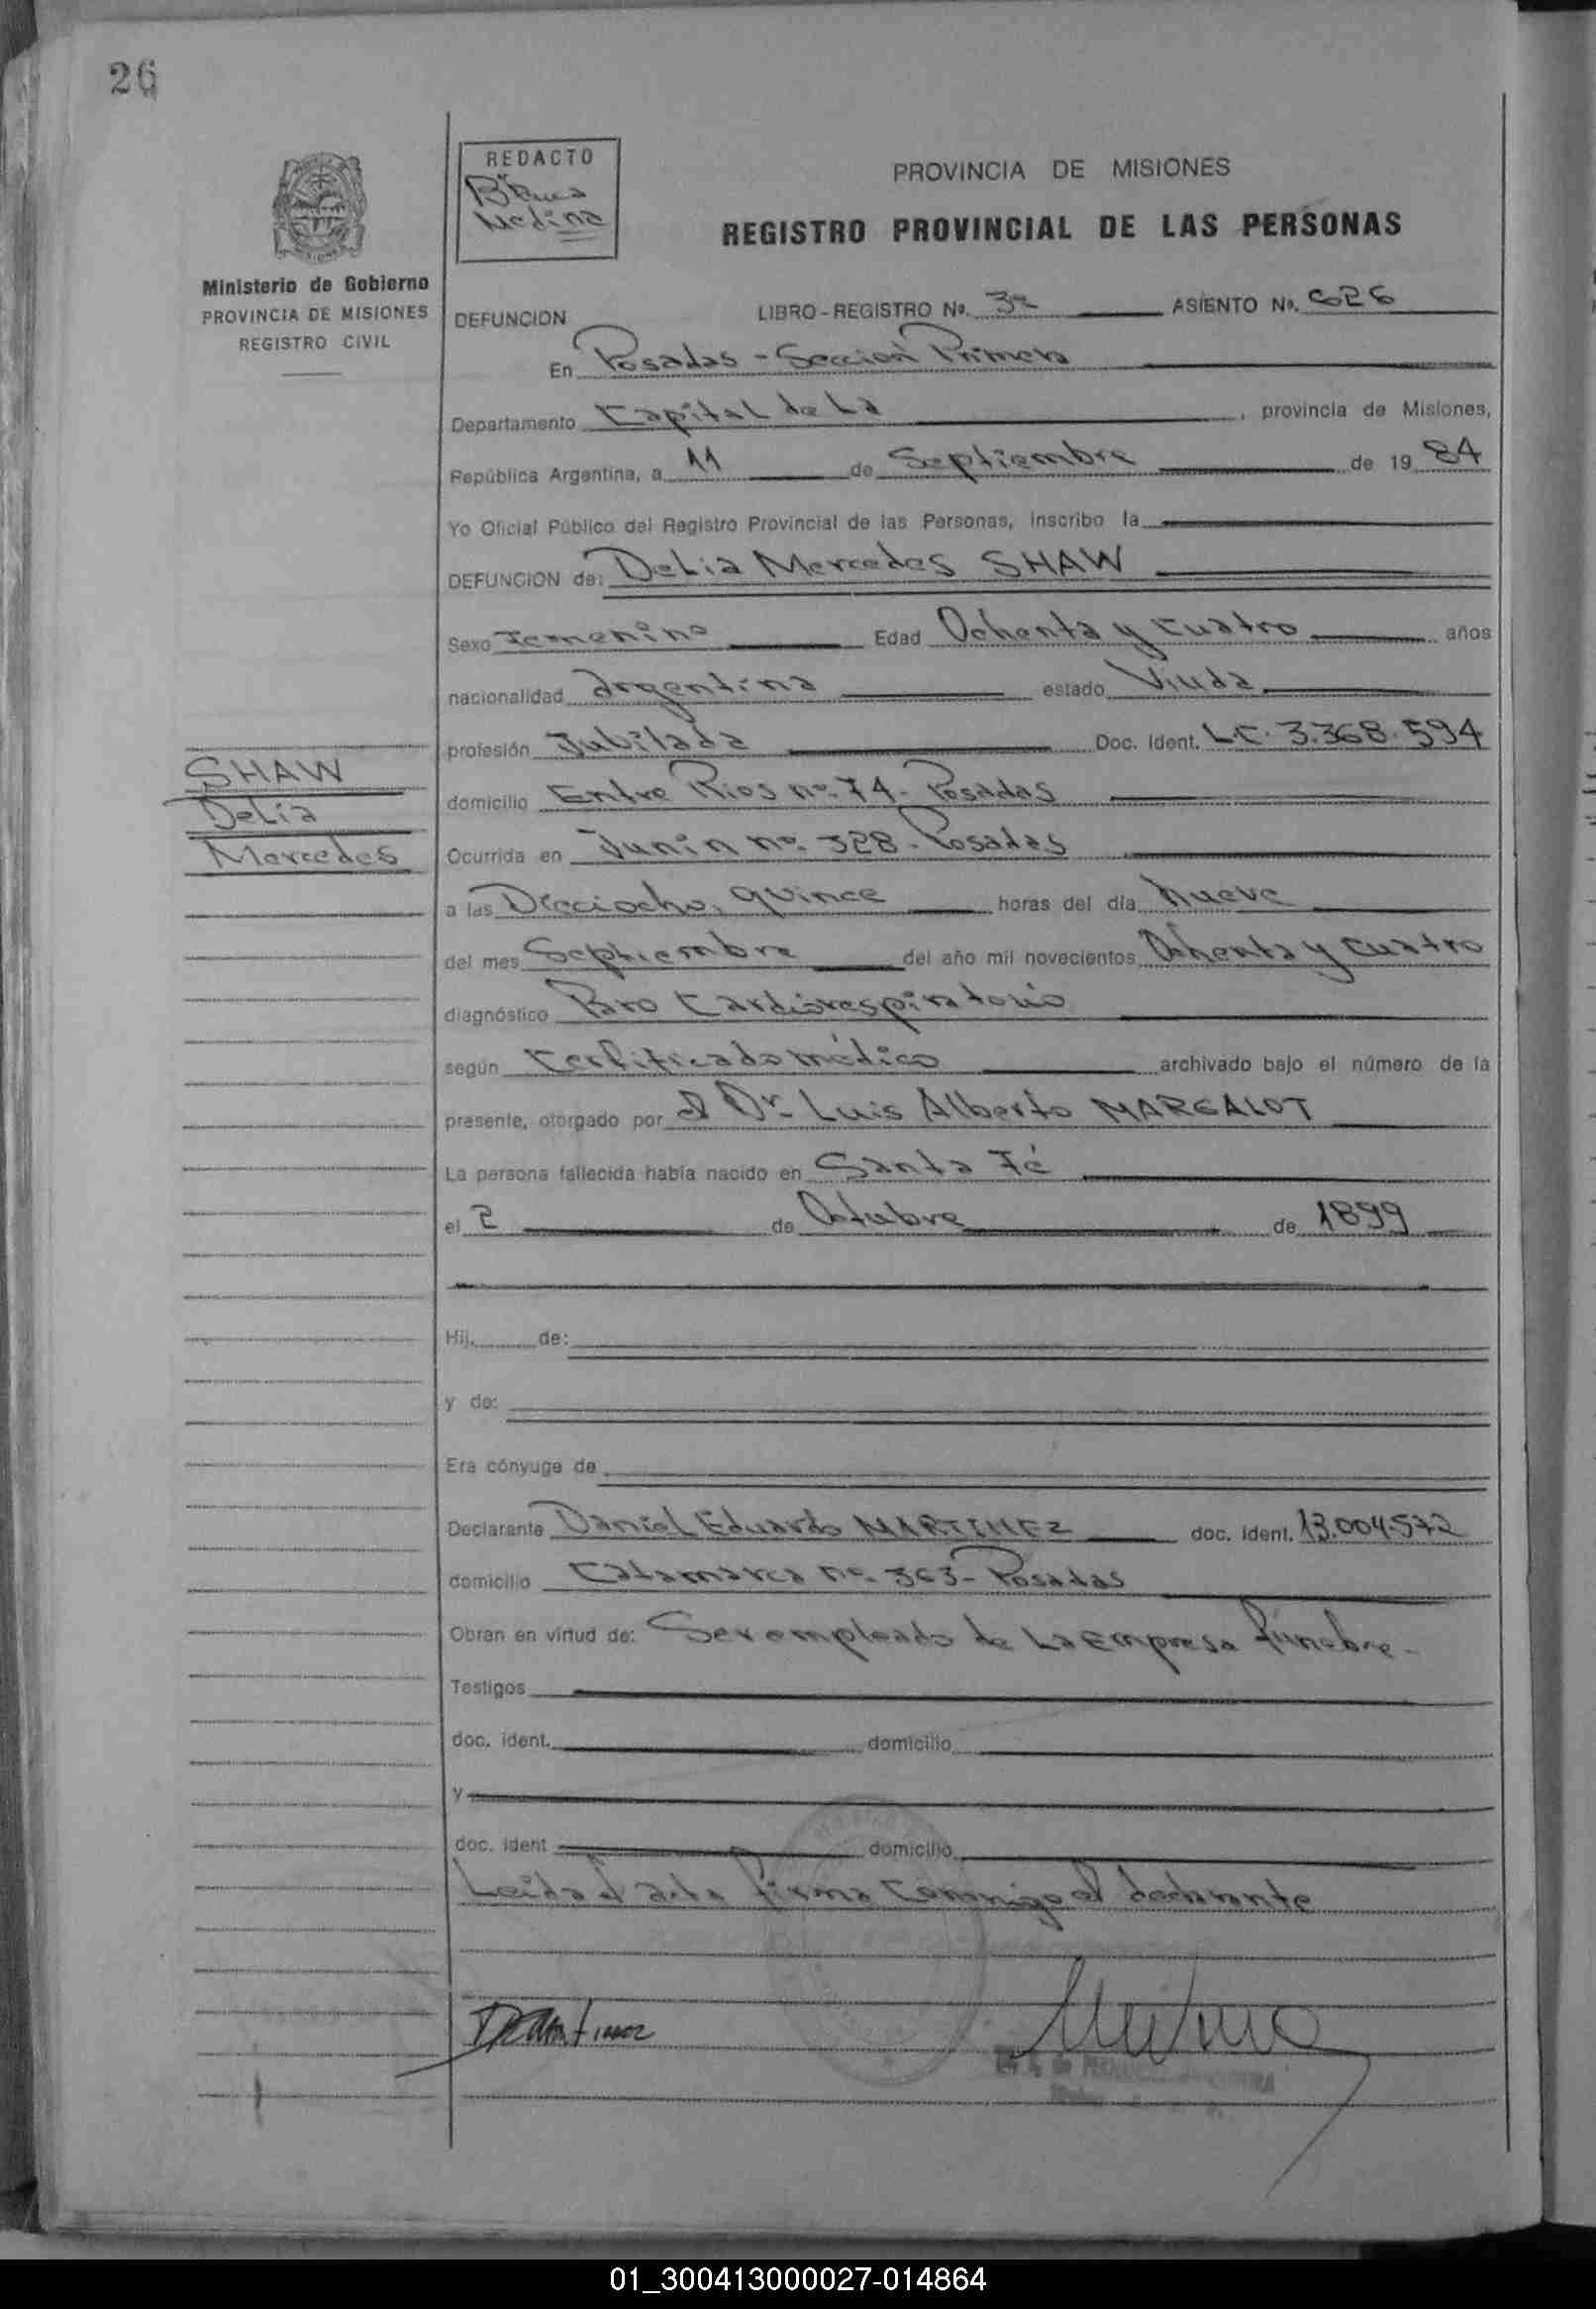 26
REDACTO
Blanca
Medina
PROVINCIA DE MISIONES
REGISTRO PROVINCIAL DE LAS PERSONAS
Ministerio de Gobierno
PROVINCIA DE MISIONES
REGISTRO CIVIL
DEFUNCION LIBRO - REGISTRO Nº. ASIENTO Nº. 626
En Posadas - Sección Primera
Departamento Capital de La , provincia de Misiones,
República Argentina, a 11 de Septiembre de 19 84
Yo Oficial Público del Registro Provincial de las Personas, inscribo la
DEFUNCION de: Delia Mercedes SHAW
Sexo Femenino Edad Ochenta y cuatro años
nacionalidad argentina estado Viuda
profesión Jubilada Doc. Ident. L.C. 3.368.594
domicilio Entre Rios nº 74 - Posadas
Ocurrida en Junin nº 328 - Posadas
a las Dieciocho, quince horas del día nueve
del mes Septiembre del año mil novecientos Ochenta y cuatro
diagnóstico Paro Cardiorespiratorio
según Certificado médico archivado bajo el número de la
presente, otorgado por el Dr. Luis Alberto MARGALOT
La persona fallecida había nacido en Santa Fé
el 2 de Octubre de 1899
Hij de:
y de:
Era cónyuge de
Declarante Daniel Eduardo MARTINEZ doc. ident. 13.004.572
domicilio Catamarca nº 363 - Posadas
Obran en virtud de: Ser empleado de La Empresa fúnebre.-
Testigos
doc. ident. domicilio
y
doc. ident domicilio
Leida el acta firma conmigo el declarante
SHAW
Delia
Mercedes
DMartinez
01_300413000027-014864